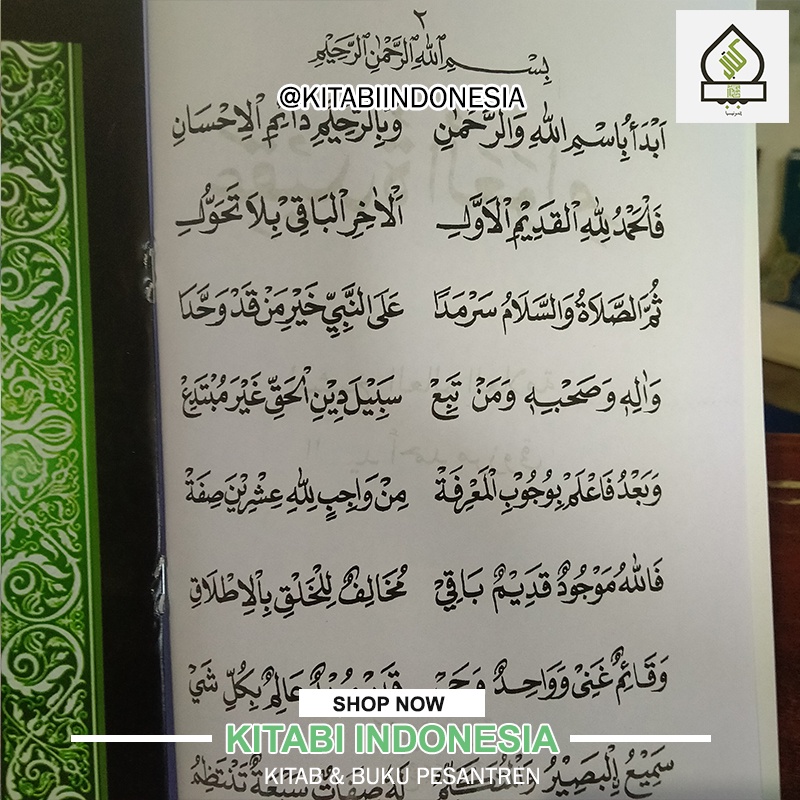 ٢
بِسْمِ اللّٰهِ الرَّحْمٰنِ الرَّحِيْمِ
@KITABIINDONESIA
اَبْدَأُ بِاسْمِ اللهِ وَالرَّحْمٰنِ وَبِالرَّحِيْمِ دَائِمِ الْاِحْسَانِ
فَالْحَمْدُ لِلّٰهِ الْقَدِيْمِ الْاَوَّلِ اَلْاٰخِرِ الْبَاقِيْ بِلَا تَحَوُّلِ
ثُمَّ الصَّلَاةُ وَالسَّلَامُ سَرْمَدًا عَلَى النَّبِيِّ خَيْرِ مَنْ قَدْ وَحَّدَا
وَاٰلِهِ وَصَحْبِهِ وَمَنْ تَبِعْ سَبِيْلَ دِيْنِ الْحَقِّ غَيْرَ مُبْتَدِعْ
وَبَعْدُ فَاعْلَمْ بِوُجُوْبِ الْمَعْرِفَةْ مِنْ وَاجِبٍ لِلّٰهِ عِشْرِيْنَ صِفَةْ
فَاللهُ مَوْجُوْدٌ قَدِيْمٌ بَاقِيْ مُخَالِفٌ لِلْخَلْقِ بِالْاِطْلَاقِ
وَقَائِمٌ غَنِيْ وَوَاحِدٌ وَحَيّ عَالِمٌ بِكُلِّ شَيْ
SHOP NOW
KITABI INDONESIA
سَمِيْعٌ اِلْبَصِيْرُ لَهُ صِفَاتٌ سَبْعَةٌ تَنْتَظِمُ
KITAB & BUKU PESANTREN